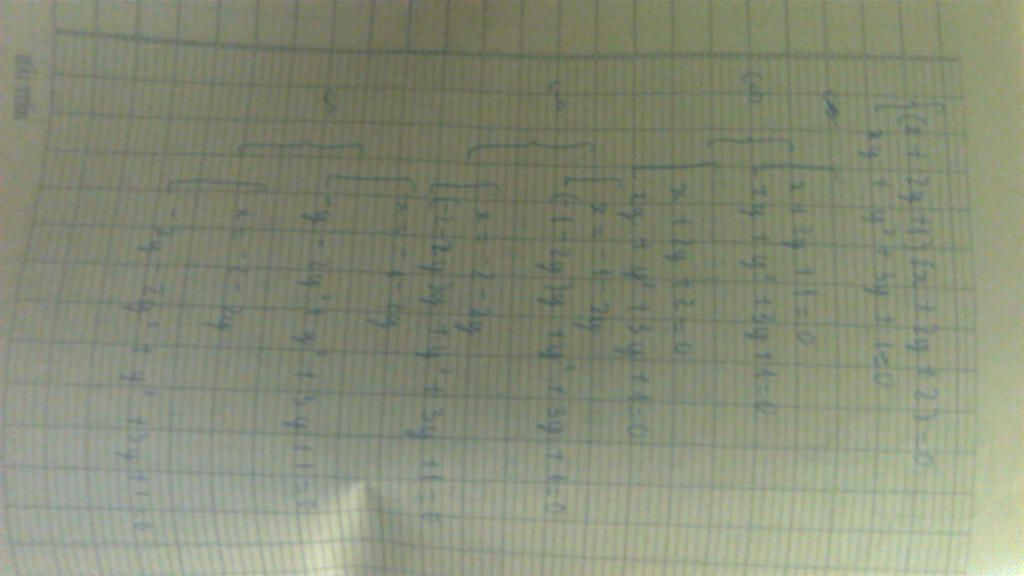 { (x + 2y + 1)(x + 2y + 2) = 0
xy + y² + 3y + 1 = 0
⇔ { x + 2y + 1 = 0
xy + y² + 3y + 1 = 0
x + 2y + 2 = 0
xy + y² + 3y + 1 = 0
⇔ { x = -1 - 2y
(-1 - 2y)y + y² + 3y + 1 = 0
x = -2 - 2y
(-2 - 2y)y + y² + 3y + 1 = 0
x = -1 - 2y
-y - 2y² + y² + 3y + 1 = 0
x = -2 - 2y
-2y - 2y² + y² + 3y + 1 = 0